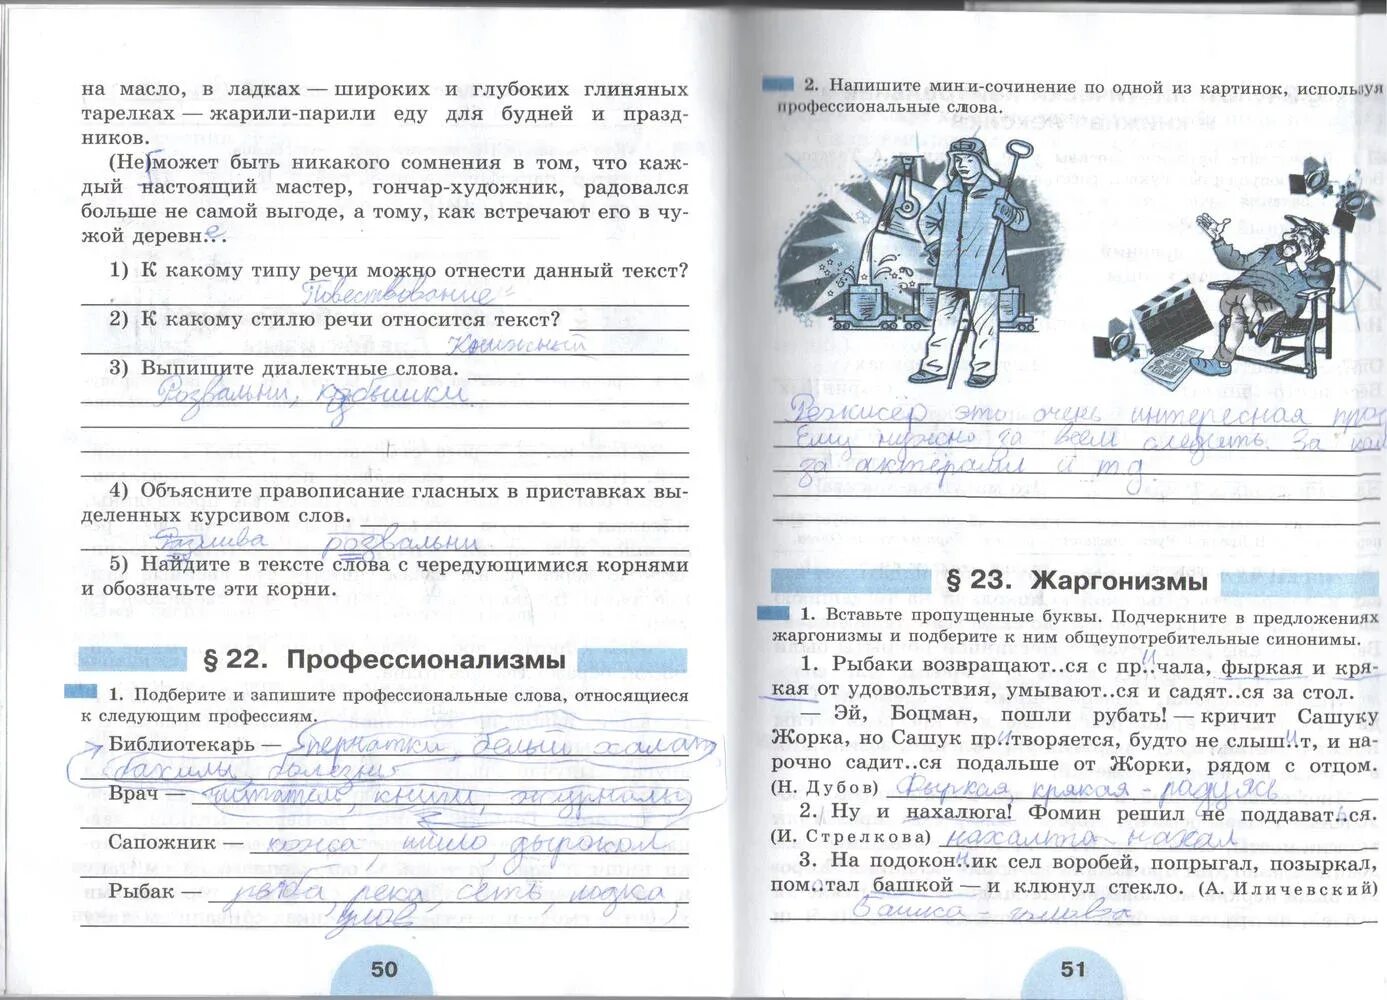 на масло, в ладках — широких и глубоких глиняных
тарелках — жарили-парили еду для будней и празд-
ников.
(Не)может быть никакого сомнения в том, что каж-
дый настоящий мастер, гончар-художник, радовался
больше не самой выгоде, а тому, как встречают его в чу-
жой деревн..е.
1) К какому типу речи можно отнести данный текст?
Повествование
2) К какому стилю речи относится текст?
Книжный
3) Выпишите диалектные слова.
Розвальни,
4) Объясните правописание гласных в приставках вы-
деленных курсивом слов.
розвальни
5) Найдите в тексте слова с чередующимися корнями
и обозначьте эти корни.
§ 22. Профессионализмы
1. Подберите и запишите профессиональные слова, относящиеся
к следующим профессиям.
Библиотекарь — Перчатки, белый халат
бахилы, болезни
Врач — читатель, книги, журналы
Сапожник — кожа, шило, дырокол
Рыбак — рыба, река, сеть, лодка,
улов
50
2. Напишите мини-сочинение по одной из картинок, используя
профессиональные слова.
Режисёр это очень интересная
Ему нужно за всем следить. За
за актёрами и т.д.
§ 23. Жаргонизмы
1. Вставьте пропущенные буквы. Подчеркните в предложениях
жаргонизмы и подберите к ним общеупотребительные синонимы.
1. Рыбаки возвращают..ся с пр..ичала, фыркая и кря-
кая от удовольствия, умывают..ся и садят..ся за стол.
— Эй, Боцман, пошли рубать! — кричит Сашуку
Жорка, но Сашук пр..итворяется, будто не слыш..ит, и на-
рочно садит..ся подальше от Жорки, рядом с отцом.
(Н. Дубов) Фыркая, крякая - радуясь
2. Ну и нахалюга! Фомин решил не поддават..ься.
(И. Стрелкова) нахал
3. На подокон..ник сел воробей, попрыгал, позыркал,
пом..отал башкой — и клюнул стекло. (А. Иличевский)
Башка - голова
51